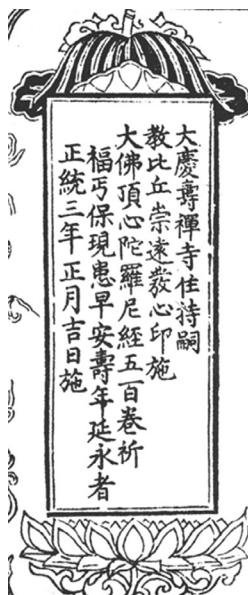 大慶壽禪寺住持嗣
教比丘崇遠發心印施
大佛頂心陀羅尼經五百卷祈
福丐保現患早安壽年延永者
正統三年正月吉日施